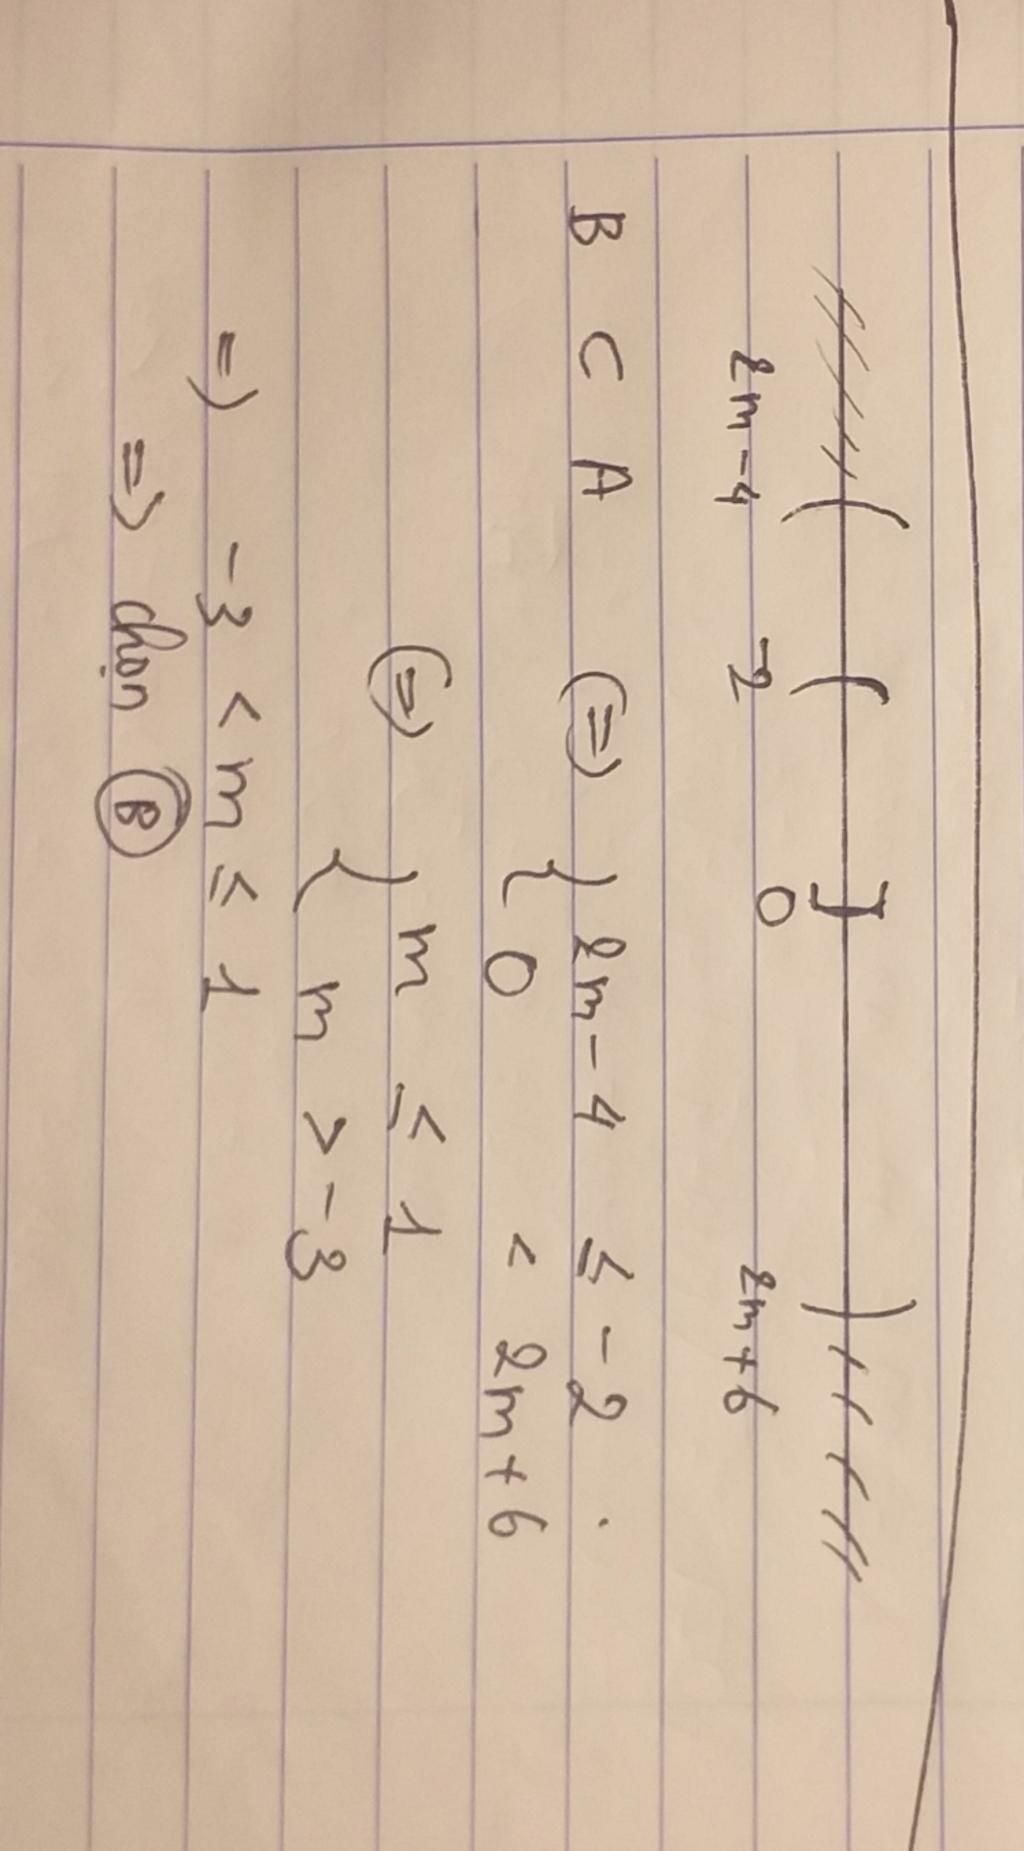 2m-4 -2 0 2m+6
B ⊂ A ⇔ { 2m-4 ≤ -2 .
0 < 2m+6
⇔ { m ≤ 1
m > -3
=> -3 < m ≤ 1
=> chọn B